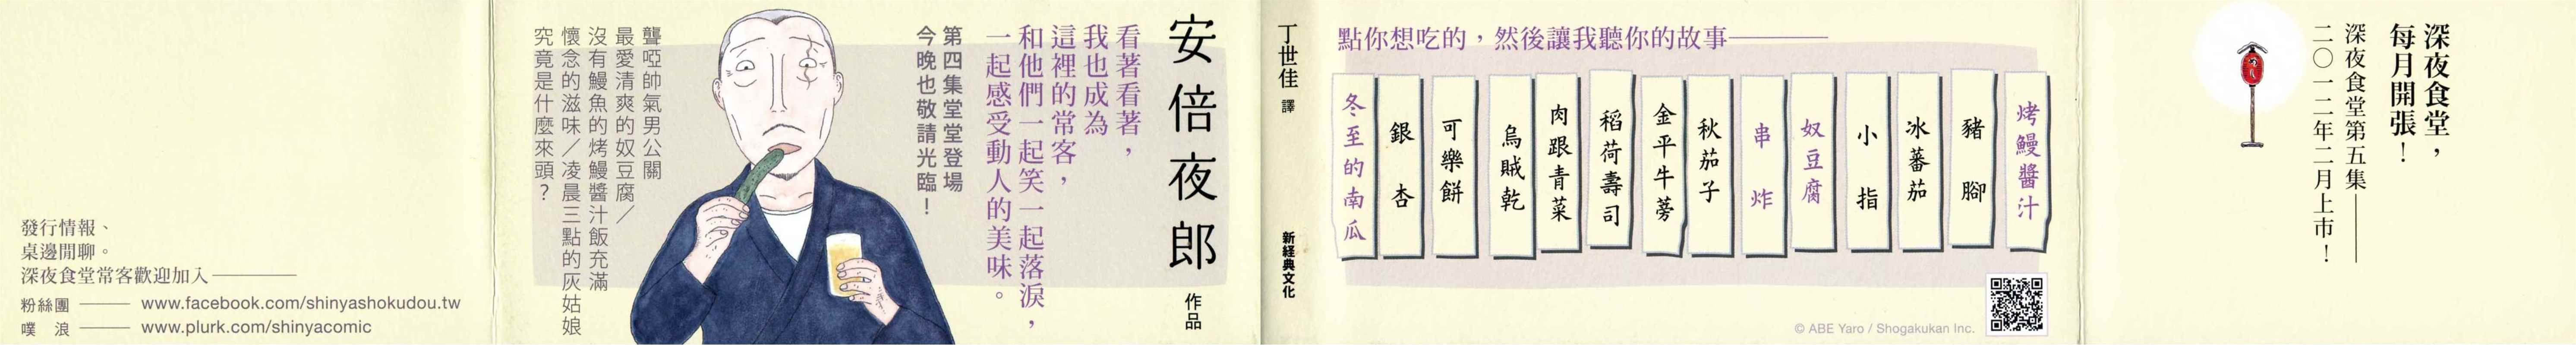 深夜食堂，
每月開張！
深夜食堂第五集——
二〇一二年二月上市！
點你想吃的，然後讓我聽你的故事——
烤鰻醬汁
豬腳
冰蕃茄
小指
奴豆腐
串炸
秋茄子
金平牛蒡
稻荷壽司
肉跟青菜
烏賊乾
可樂餅
銀杏
冬至的南瓜
© ABE Yaro / Shogakukan Inc.
丁世佳 譯
新経典文化
安倍夜郎 作品
看著看著，
我也成為
這裡的常客，
和他們一起笑一起落淚，
一起感受動人的美味。
第四集堂堂登場
今晚也敬請光臨！
聾啞帥氣男公關
最愛清爽的奴豆腐／
沒有鰻魚的烤鰻醬汁飯充滿
懷念的滋味／凌晨三點的灰姑娘
究竟是什麼來頭？
發行情報、
桌邊閒聊。
深夜食堂常客歡迎加入——
粉絲團 —— www.facebook.com/shinyashokudou.tw
噗 浪 —— www.plurk.com/shinyacomic